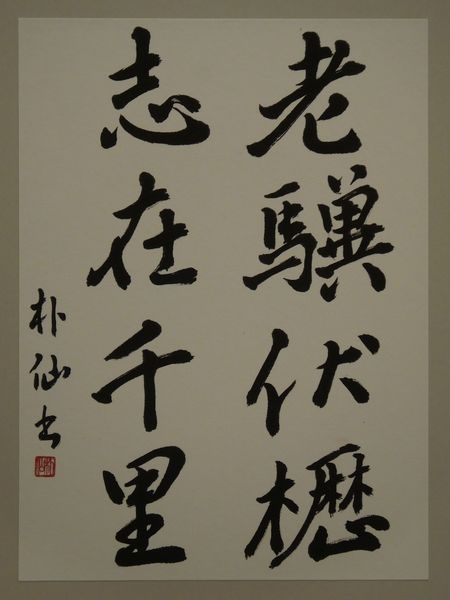 老驥伏櫪
志在千里
朴仙书